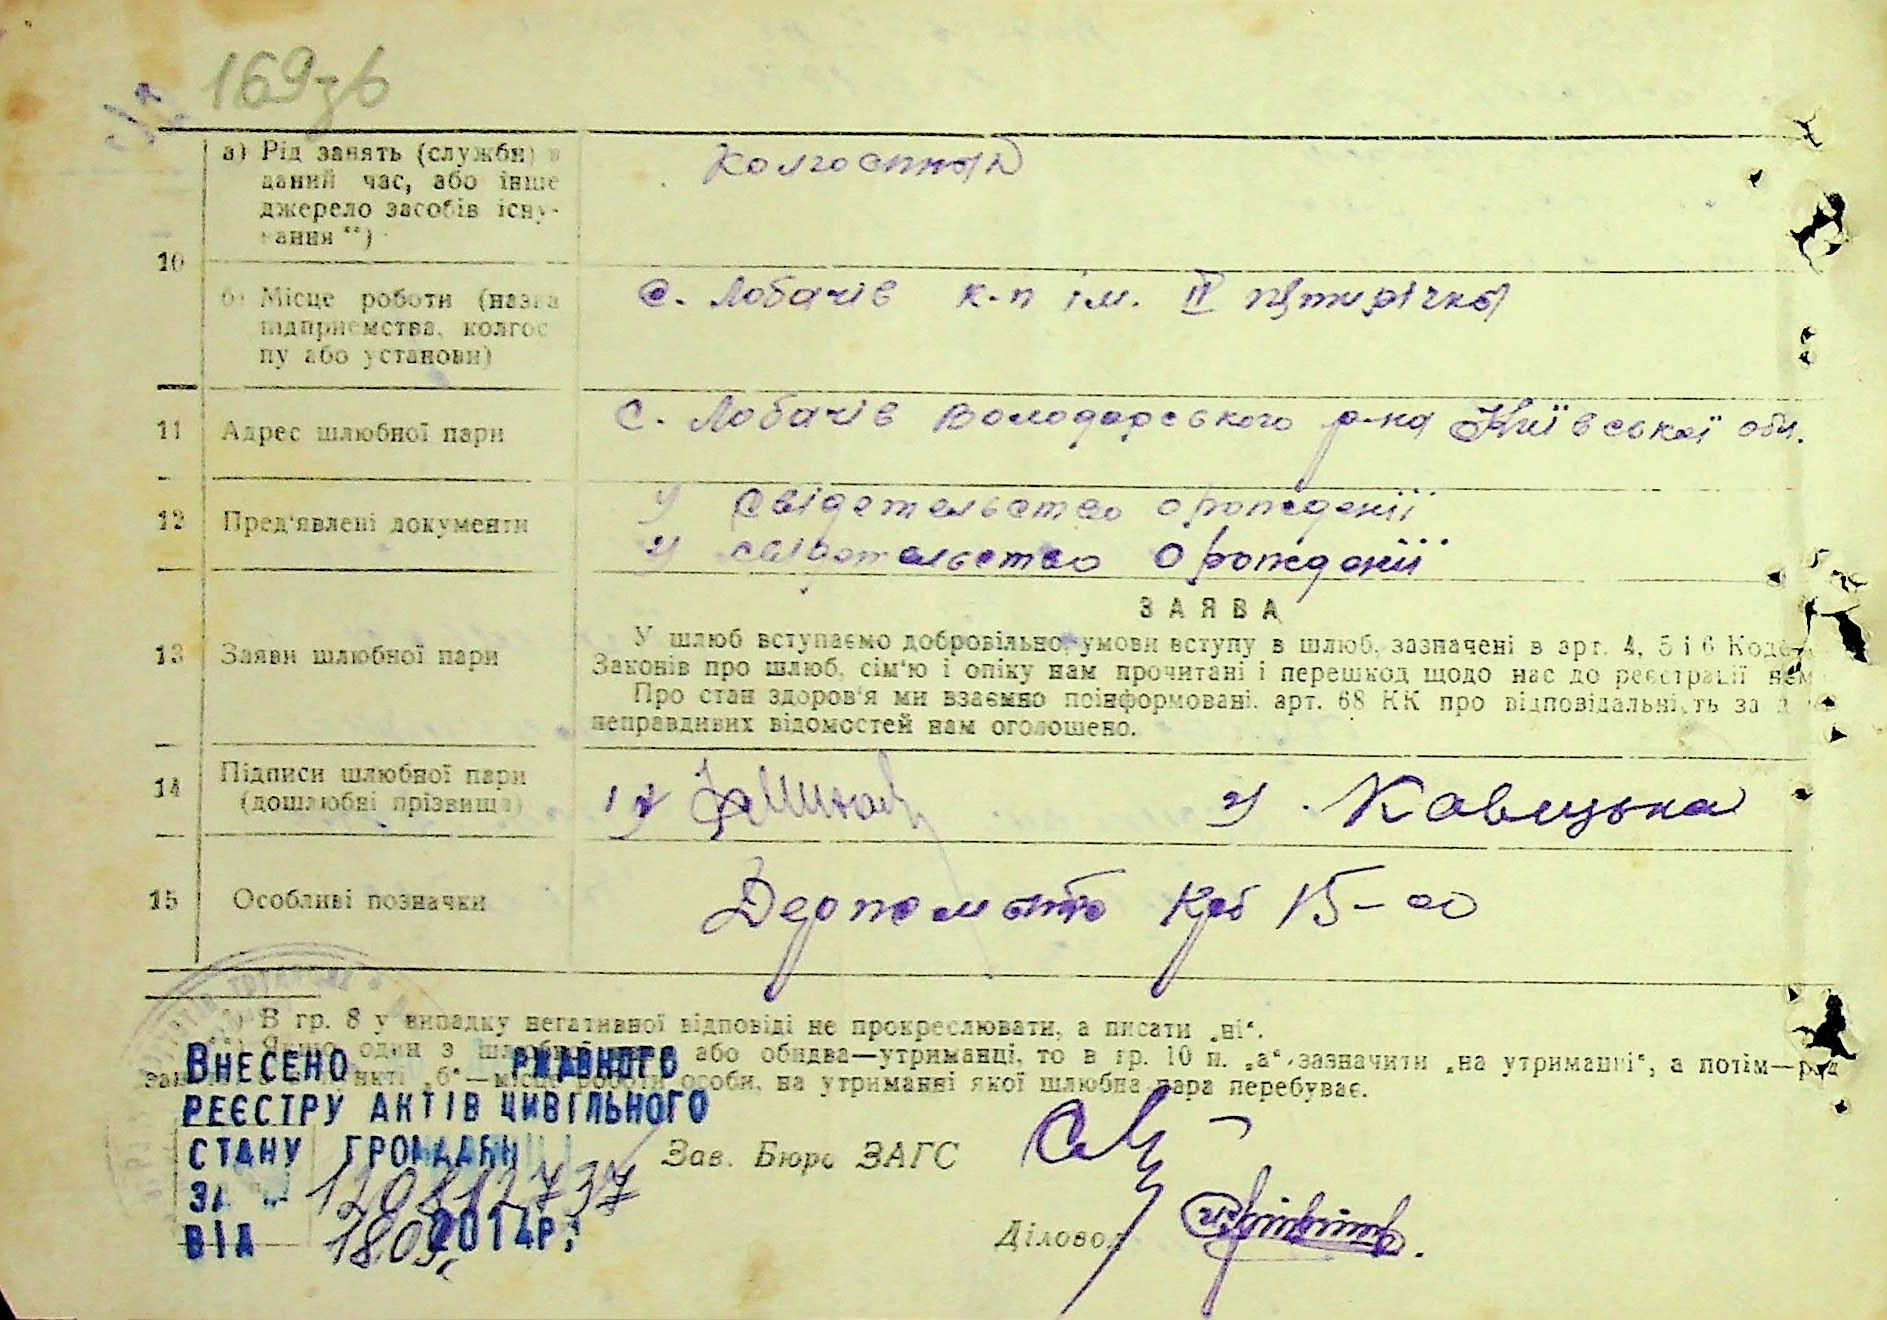 169зв
10
а) Рід занять (служби) в
даний час, або інше
джерело засобів існу-
вання **)
Колгоспник
б) Місце роботи (назва
підприємства, колгос
пу або установи)
с. Лобачів к-п ім. II п'ятирічки
11 Адрес шлюбної пари
с. Лобачів Володарського р-на Київської обл.
12 Пред'явлені документи
1) свідетельство о рожденії
2) свідетельство о рожденії
13 Заяви шлюбної пари
ЗАЯВА
У шлюб вступаємо добровільно, умови вступу в шлюб, зазначені в арт. 4, 5 і 6 Коде
Законів про шлюб, сім'ю і опіку нам прочитані і перешкод щодо нас до реєстрації нем
Про стан здоров'я ми взаємно поінформовані, арт. 68 КК про відповідальність за д
неправдивих відомостей нам оголошено.
14 Підписи шлюбної пари
(дошлюбні прізвища)
1) 2) Кавецька
15 Особливі позначки
Держмито Крб 15-00
*) В гр. 8 у випадку негативної відповіді не прокреслювати, а писати „ні“.
**) Якщо один з або обидва—утриманці, то в гр. 10 п. „а“ зазначити „на утриманні“, а потім—рід
пункті „б“—місце роботи особи, на утриманні якої шлюбна пара перебуває.
ВНЕСЕНО РЖАВНОГО
РЕЄСТРУ АКТІВ ЦИВІЛЬНОГО
СТАНУ ГРОМАДЯН
ЗА № 120812737
ВІД 18.09. 2014Р.
Зав. Бюро ЗАГС
Діловод